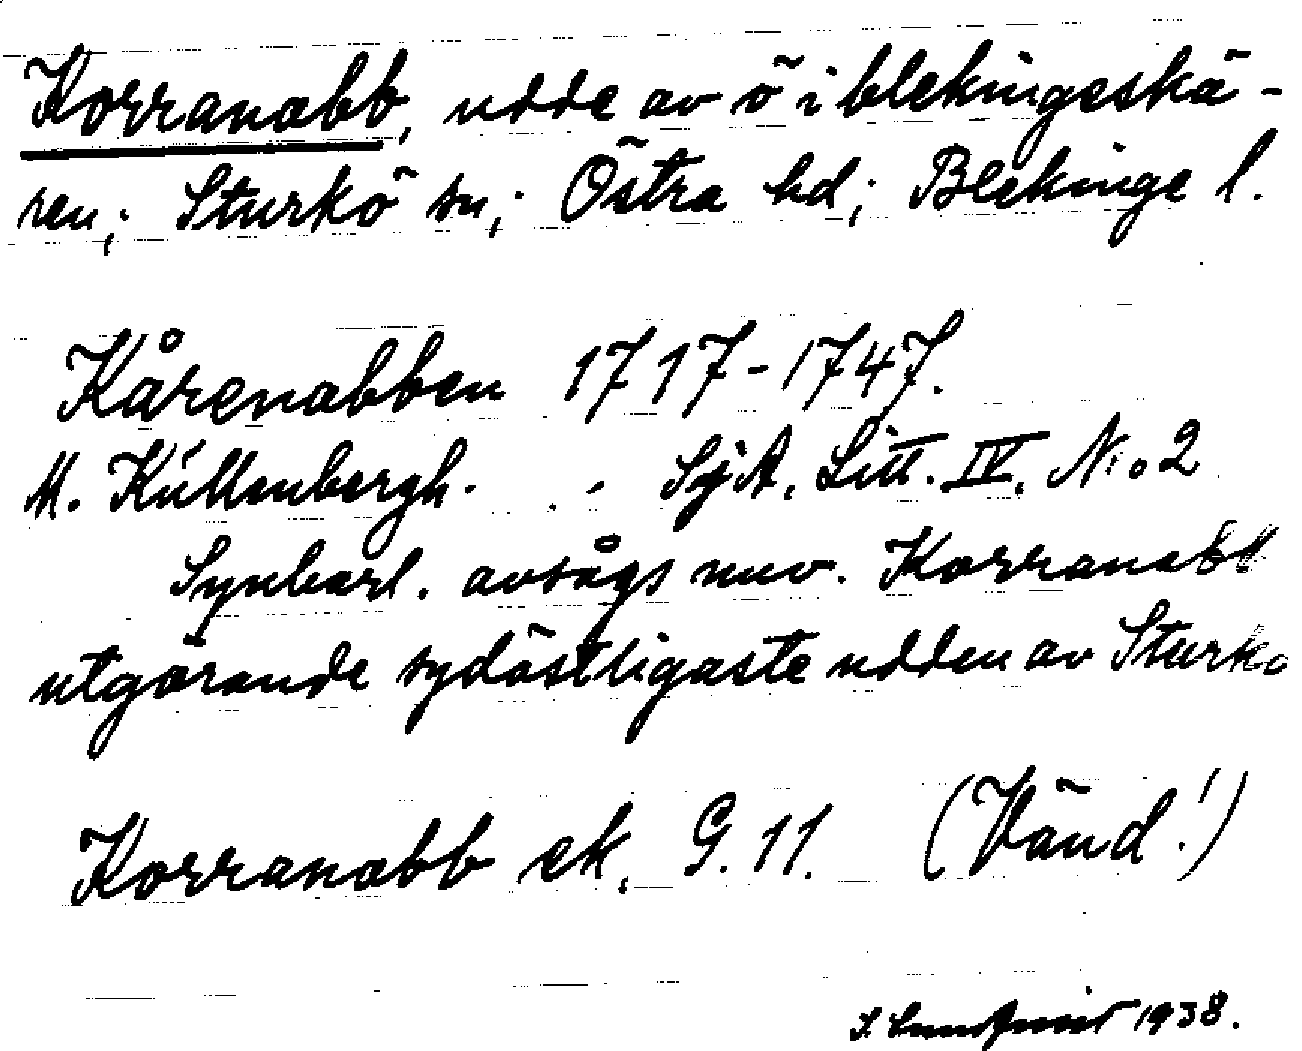 Korranabb, udde av ö i blekingeskä-
ren; Sturkö sn; Östra hd; Blekinge l.
Kårenabben 1717-1747.
M. Küllenbergh. - SjA. Litt. IV. N:o 2
Synbarl. avsågs nuv. Korranabb
utgörande sydöstligaste udden av Sturkö
Korranabb ek. G. 11. (Vänd!)
1938.